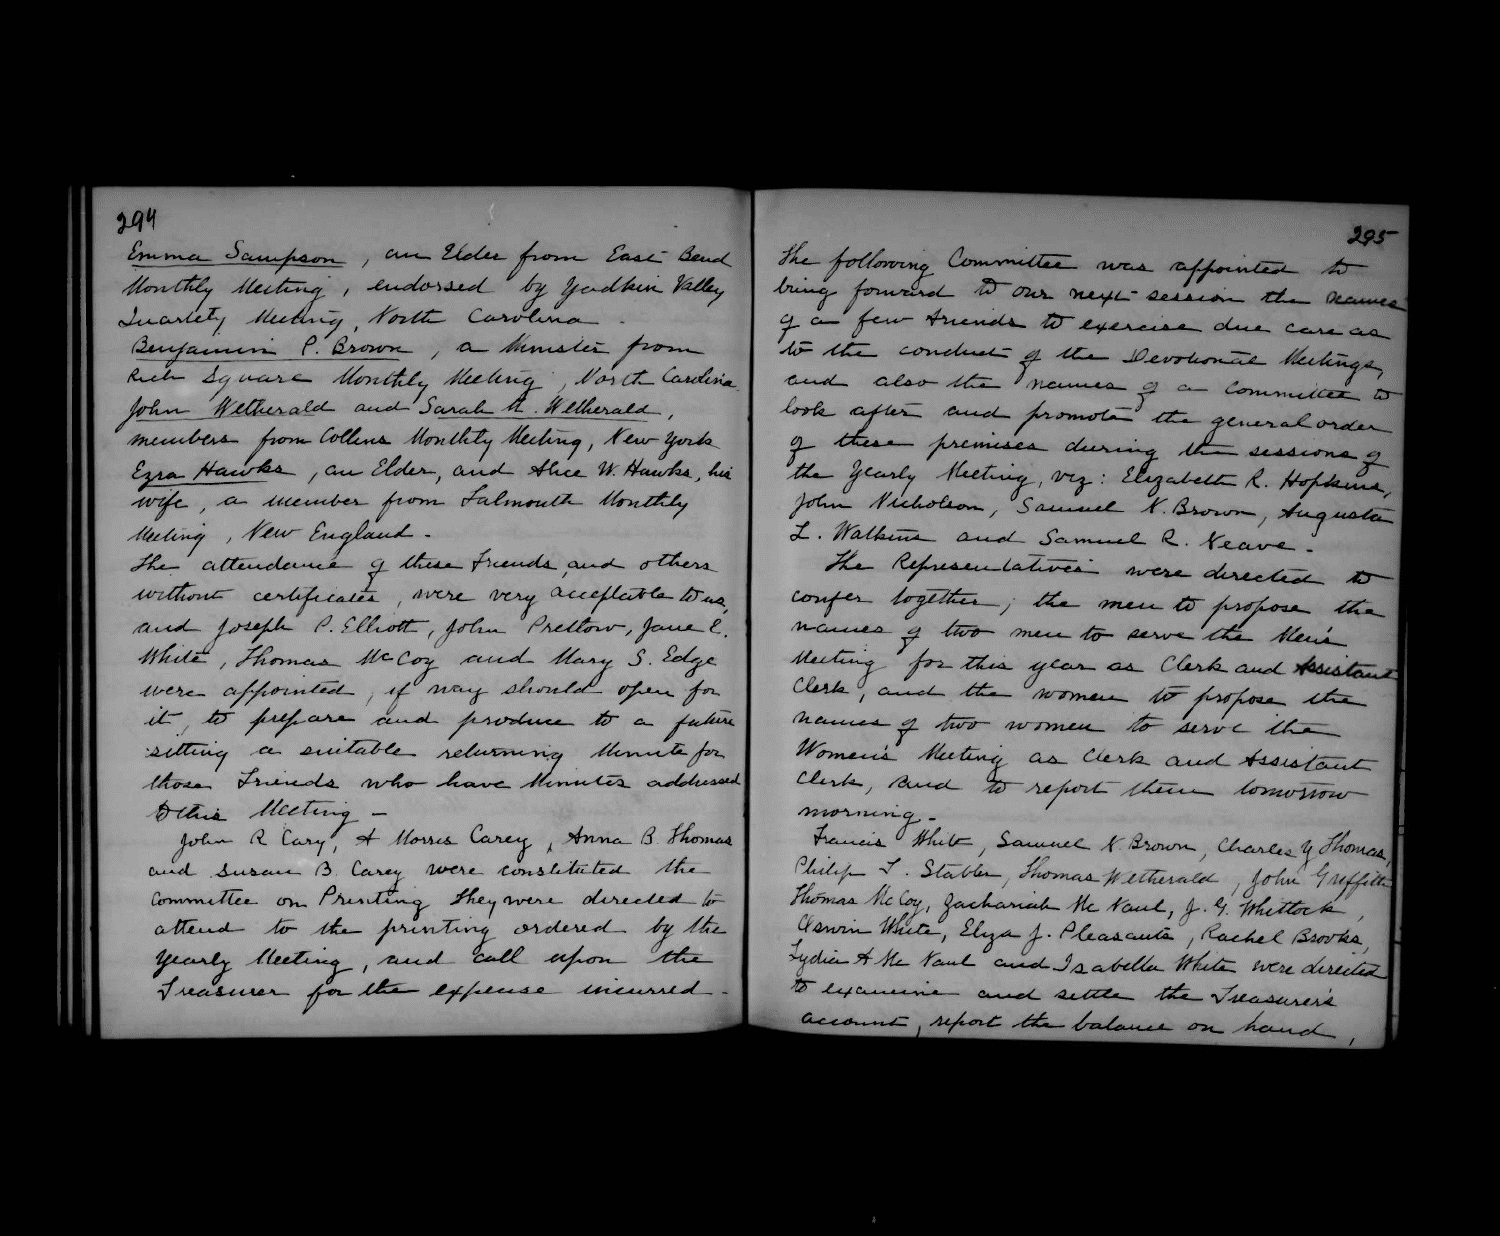 294
Emma Sampson, an Elder from East Bend
Monthly Meeting, endorsed by Yadkin Valley
Quartety Meeting, North Carolina -
Benjamin P. Brown, a Minister from
Rich Square Monthly Meeting, North Carolina.
John Wetherald and Sarah A. Wetherald,
members from Collins Monthly Meeting, New York
Ezra Hawks, an Elder, and Alice W. Hawks, his
wife, a member from Falmouth Monthly
Meeting, New England -
The attendance of these Friends, and others
without certificates, were very acceptable to us,
and Joseph P. Elliott, John Pretlow, Jane E.
White, Thomas McCoy and Mary S. Edge
were appointed, if way should open for
it, to prepare and produce to a future
sitting a suitable returning Minute for
those Friends who have Minutes addressed
to this Meeting -
John R Cary, A Morris Carey, Anna B. Thomas
and Susan B. Carey were constituted the
Committee on Printing They were directed to
attend to the printing ordered by the
Yearly Meeting, and call upon the
Treasurer for the expense incurred -
295
The following Committee was appointed to
bring forward to our next session the names
of a few Friends to exercise due care as
to the conduct of the Devotional Meetings,
and also the names of a Committee to
look after and promote the general order
of these premises during the sessions of
the Yearly Meeting, viz: Elizabeth R. Hopkins,
John Nicholson, Samuel N. Brown, Augusta
L. Watkins and Samuel R. Neave -
The Representatives were directed to
confer together; the men to propose the
names of two men to serve the Men's
Meeting for this year as Clerk and Assistant
Clerk, and the women to propose the
names of two women to serve the
Women's Meeting as Clerk and Assistant
Clerk, and to report them tomorrow
morning -
Francis White, Samuel N Brown, Charles Y Thomas,
Philip T. Stabler, Thomas Wetherald, John Griffith
Thomas McCoy, Zachariah McNaul, J. G. Whitlock,
Oswin White, Eliza J. Pleasants, Rachel Brooks,
Lydia A McNaul and Isabella White were directed
to examine and settle the Treasurer's
account, report the balance on hand,